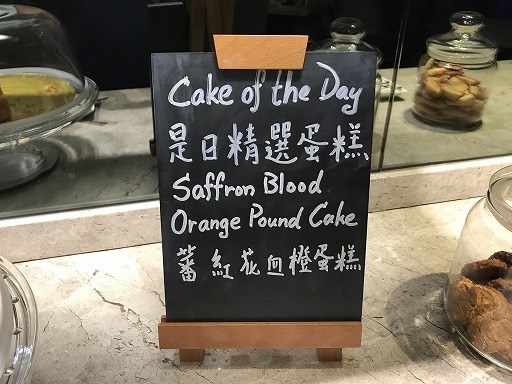 Cake of the Day
是日精選蛋糕
Saffron Blood
Orange Pound Cake
蕃紅花血橙蛋糕